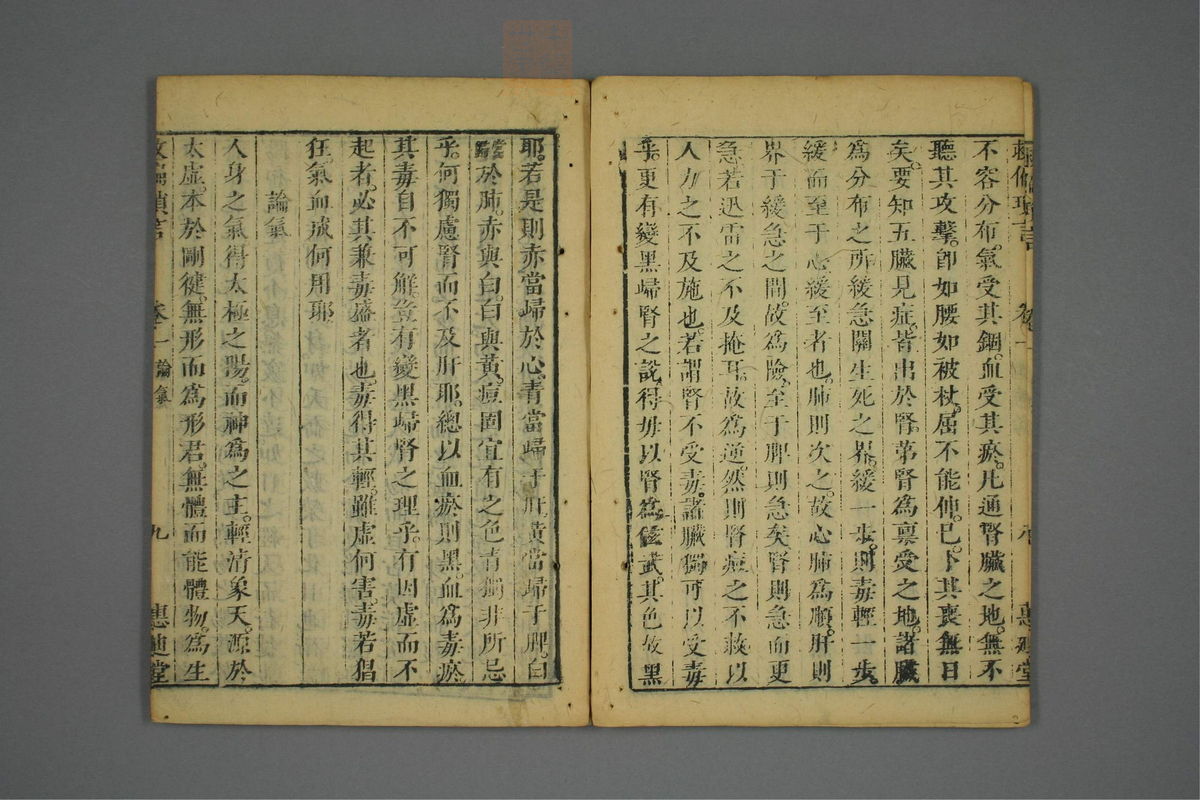 不容分布。氣受其錮。血受其瘀。凡通腎臟之地。無不
聽其攻擊。卽如腰如被杖。屈不能伸。已卜其喪無日
矣。要知五臟見症。皆出於腎。第腎爲稟受之地。諸臟
爲分布之所。緩急關生死之界。緩一步。則毒輕一步。
緩而至于心。緩至者也。肺則次之。故心肺爲順。肝則
界于緩急之間。故爲險。至于脾則急矣。腎則急而更
急。若迅雷之不及掩耳。故爲逆。然則腎症之不救。以
人力之不及施也。若謂腎不受毒。諸臟獨可以受毒
乎。更有變黑歸腎之說。得毋以腎爲武。其色故黑
卷一
八
惠廸堂
耶。若是則赤當歸於心。青當歸于肝。黃當歸于脾。白
當歸於肺。赤與白。白與黃。痘固宜有之色。青獨非所忌
乎。何獨慮腎而不及肝耶。總以血瘀則黑。血爲毒瘀
其毒自不可解。豈有變黑歸腎之理乎。有因虛而不
起者。必其兼毒者也。毒得其輕。雖虛何害。毒若猖
狂。氣血誠何用耶
論氣
人身之氣。得太極之陽。而神爲之主。輕清象天。源於
太虛。本於剛健。無形而爲形君。無體而能體物。爲生
卷一
論氣
九
惠廸堂